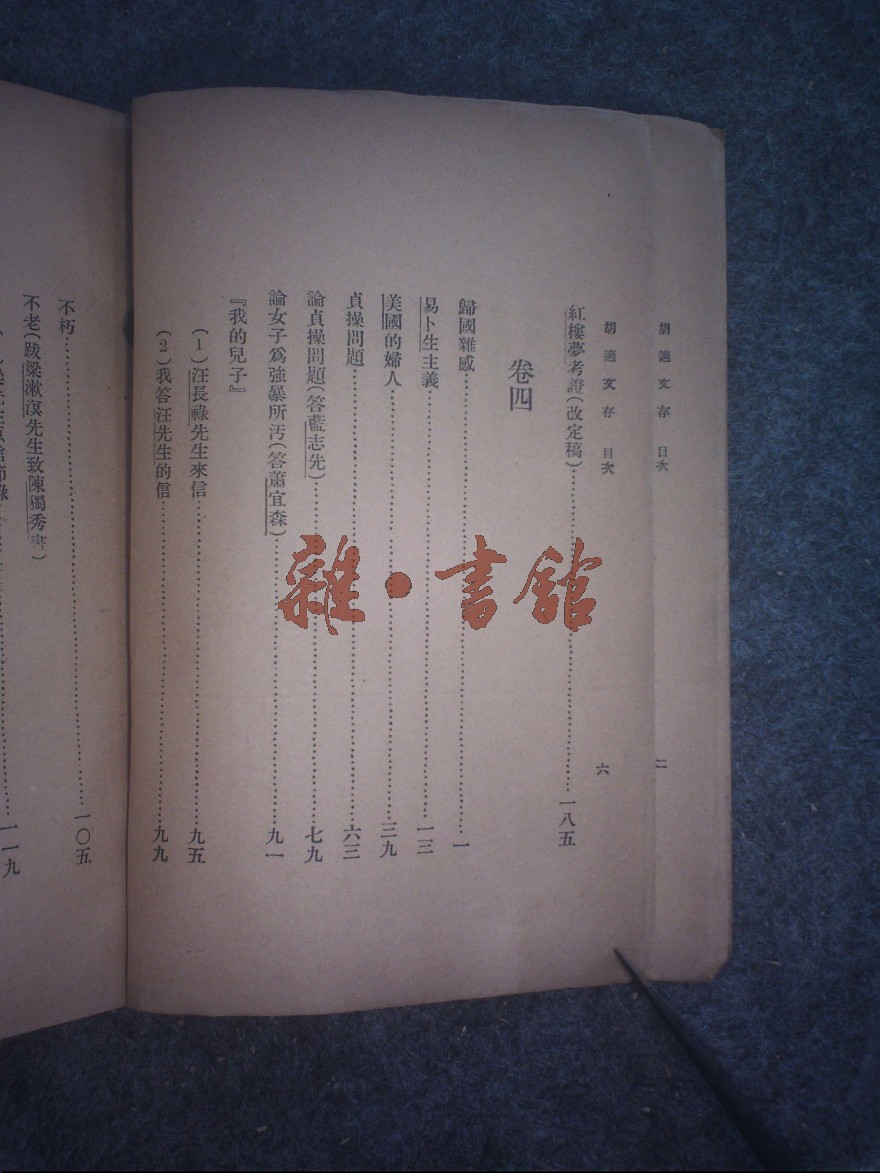 胡適文存 目次 二
胡適文存 目次 六
紅樓夢考證(改定稿)……一八五
卷四
歸國雜感……一
易卜生主義……一三
美國的婦人……三九
貞操問題……六三
論貞操問題(答藍志先)……七九
論女子爲強暴所汚(答蕭宜森)……九一
『我的兒子』
(1)汪長祿先生來信……九五
(2)我答汪先生的信……九九
不朽……一〇五
不老(跋梁漱溟先生致陳獨秀書)
一一九
雜·書館